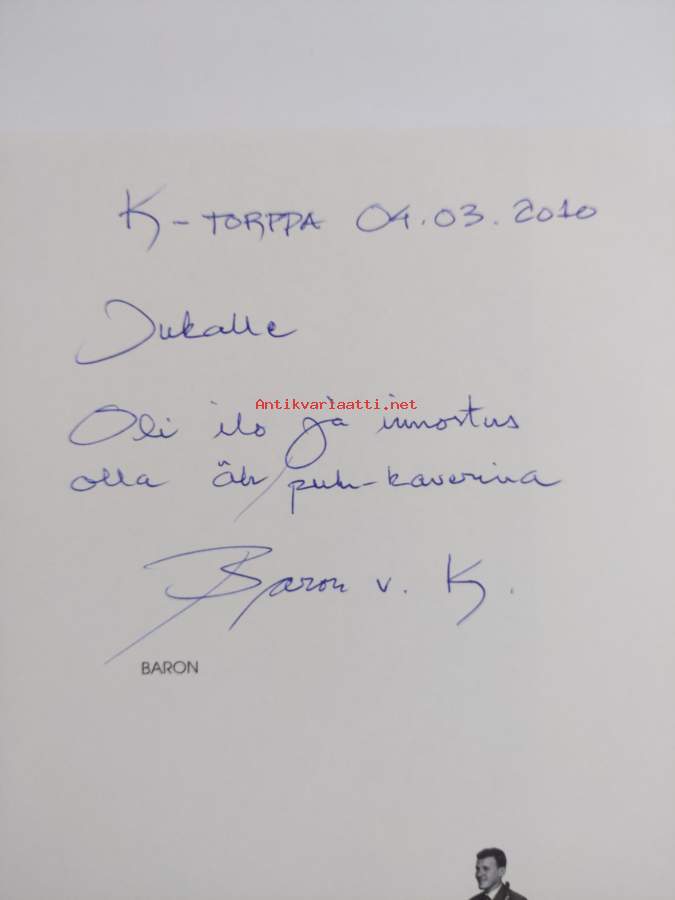 K-TORPPA 04.03.2010
Jukalle
Antikvariaatti.net
Oli ilo ja innostus
olla äh/puh-kaverina
Baron v. K.
BARON